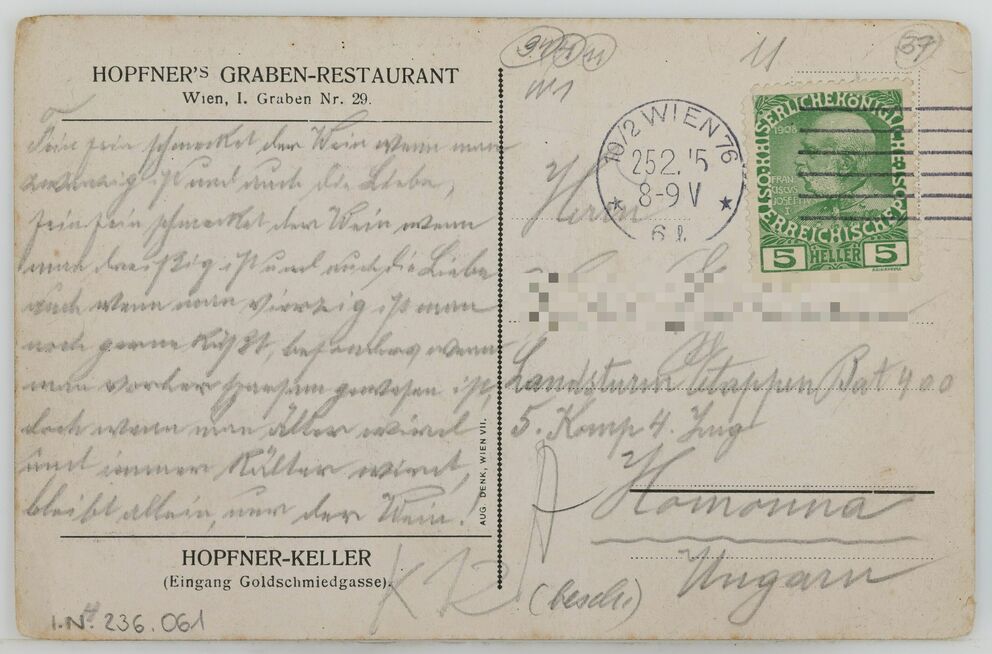 HOPFNER'S GRABEN-RESTAURANT
Wien, I. Graben Nr. 29.
Fein fein schmecket der Wein wenn man
zwanzig ist und auch die Liebe,
fein fein schmecket der Wein wenn
man dreißig ist und auch die Liebe
auch wenn man vierzig ist man
noch gerne küßt, besonders wenn
man vorher sparsam gewesen ist,
doch wenn man älter wird
und immer kälter wird,
bleibt allein, nur der Wein!
HOPFNER-KELLER
(Eingang Goldschmiedgasse).
I.N. 236.061
AUG DENK, WIEN VII.
11
37
10/2 WIEN 76
25 2. 15
8-9 V
KAISERLICHE KÖNIGLICHE ÖSTERREICHISCHE POST
1908
FRANCISCUS JOSEPH I
5 HELLER 5
Herrn
Landsturm Etappen Bat 400
5. Komp 4. Zug
Homonna
Ungarn
(besch.)